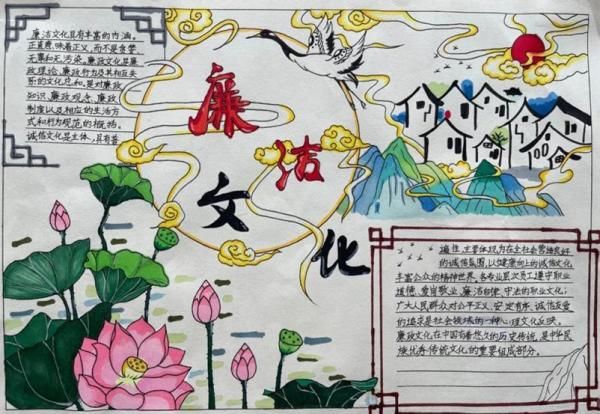 廉洁文化具有丰富的内涵。
正直意味着正义,而不是贪婪,
无辜和无污染。廉政文化是廉
政理论、廉政行为及其相互关
系的文化总和,是对廉政
知识、廉政观念、廉政
制度以及相应的生活方
式和行为规范的概括。
诚信文化是主体,具有普
廉洁
文化
遍性,主要体现为在全社会营造良好
的诚信氛围,以健康向上的诚信文化
丰富公众的精神世界,各行业员工遵守职业
道德、爱岗敬业、廉洁自律、守法的职业文化;
广大人民群众对公平正义、安定有序、诚信友爱
的追求是社会领域的一种心理文化反映。
廉政文化在中国有着悠久的历史传统,是中华民
族优秀传统文化的重要组成部分。